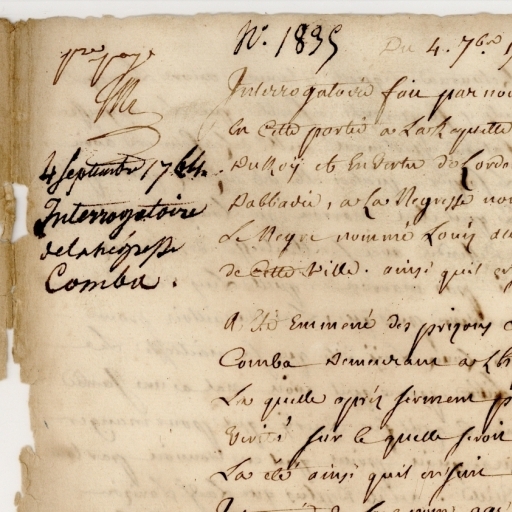 pre page
No. 1835
Du 4. 7bre 1
4 Septembre 1764.
Interrogatoire
de la négresse
Comba.
Interrogatoire fait par nou
en cette partie a la Requette
Du Roy et En vertu de Lordo
Dabbadie, a La Negresse no
Le Negre nommé Louis
de Cette Ville. ainsi quil
A Eté Emmené des prisons
Comba Demeurant a Lh
La quelle après serment p
Verité sur le quelle seroit
La elé ainsi quil ensuit